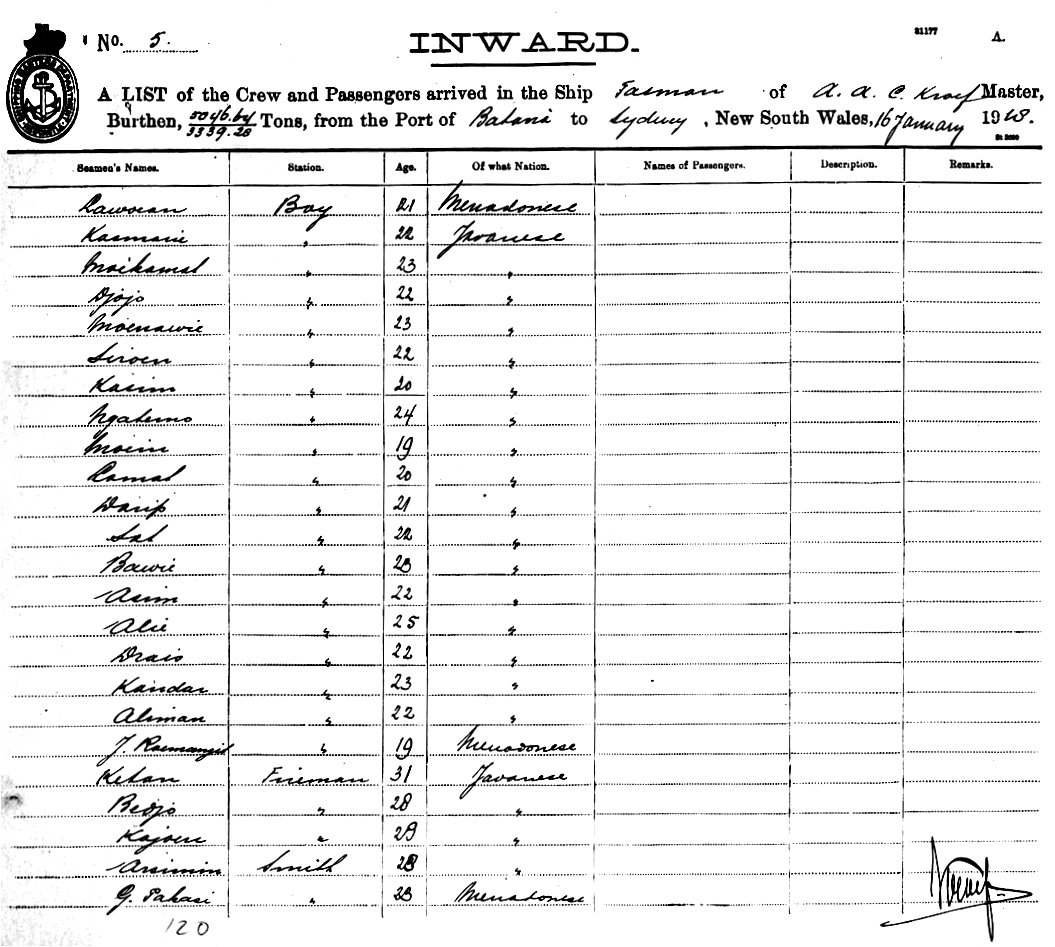 No. 5.
INWARD.
31177
A.
A LIST of the Crew and Passengers arrived in the Ship Tasman of A. A. C. Kroef Master,
Burthen, 5046.by/3339.28 Tons, from the Port of Batavia to Sydney, New South Wales, 16 January
St 2690
Seamen's Names. Station. Age. Of what Nation. Names of Passengers. Description. Remarks.
Lawoean Boy 21 Menadonese
Kasmarie " 22 Javanese
Moekamat " 23 "
Djojo " 22 "
Moenawie " 23 "
Siroen " 22 "
Kasim " 20 "
Ngatemo " 24 "
Moein " 19 "
Ramat " 20 "
Darip " 21 "
Sat " 22 "
Bawie " 23 "
Asim " 22 "
Alie " 25 "
Drais " 22 "
Kandar " 23 "
Aliman " 22 "
J. " 19 Menadonese
Ketan Fireman 31 Javanese
Bedjo " 28 "
Kajoen " 29 "
Arsimin Smith 28 "
G. Pakasi " 23 Menadonese
120